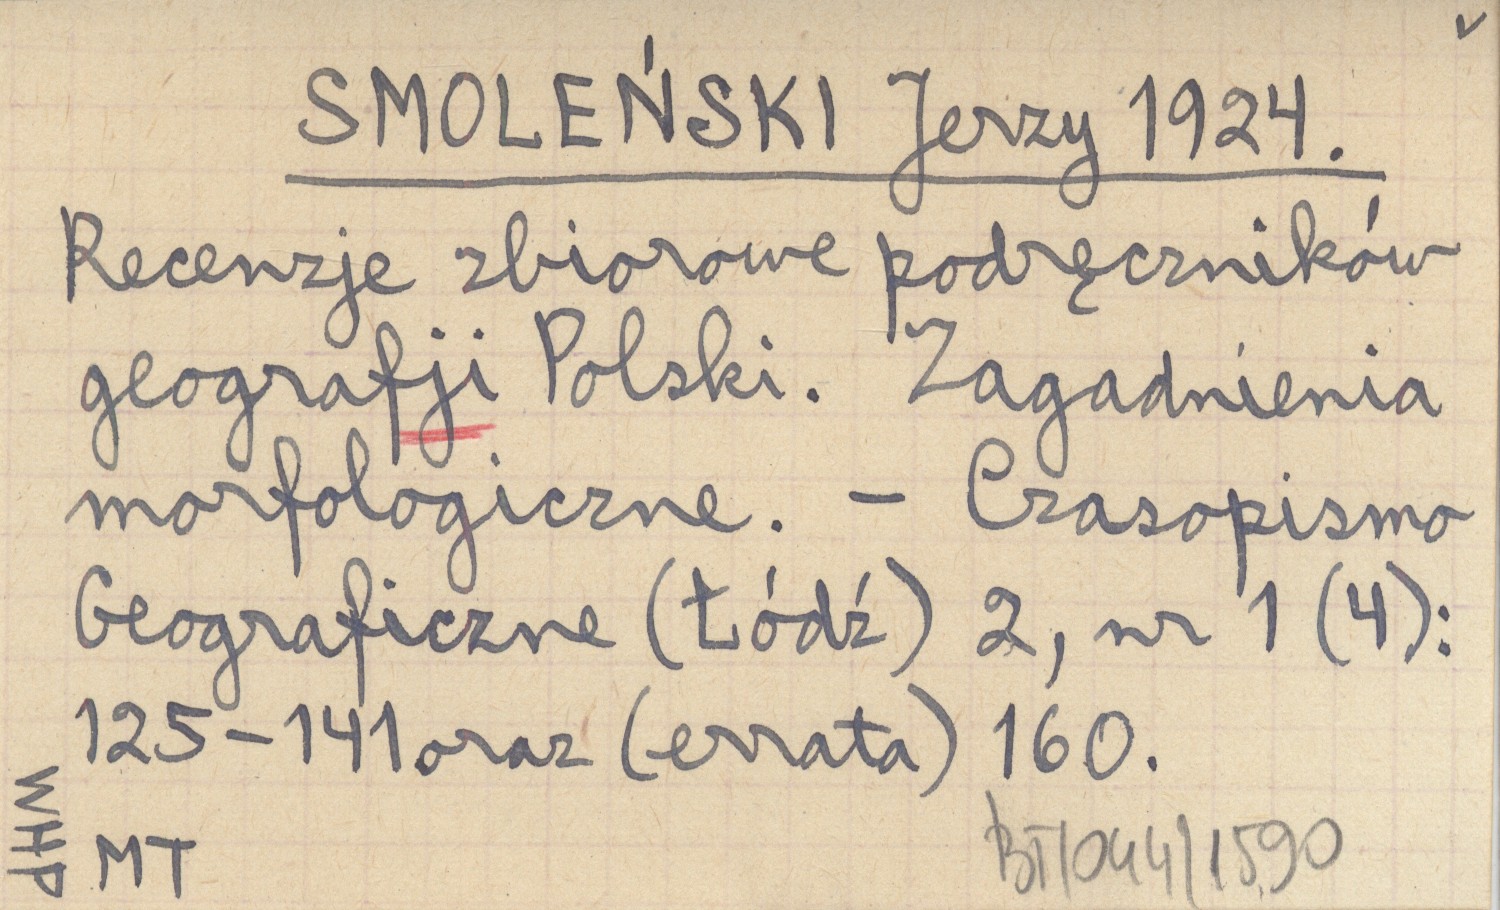 SMOLEŃSKI Jerzy 1924.
Recenzje zbiorowe podręczników
geografji Polski. Zagadnienia
morfologiczne. – Czasopismo
Geograficzne (Łódź) 2, nr 1 (4):
125–141 oraz (errata) 160.
WHP
MT
BT/044/1590